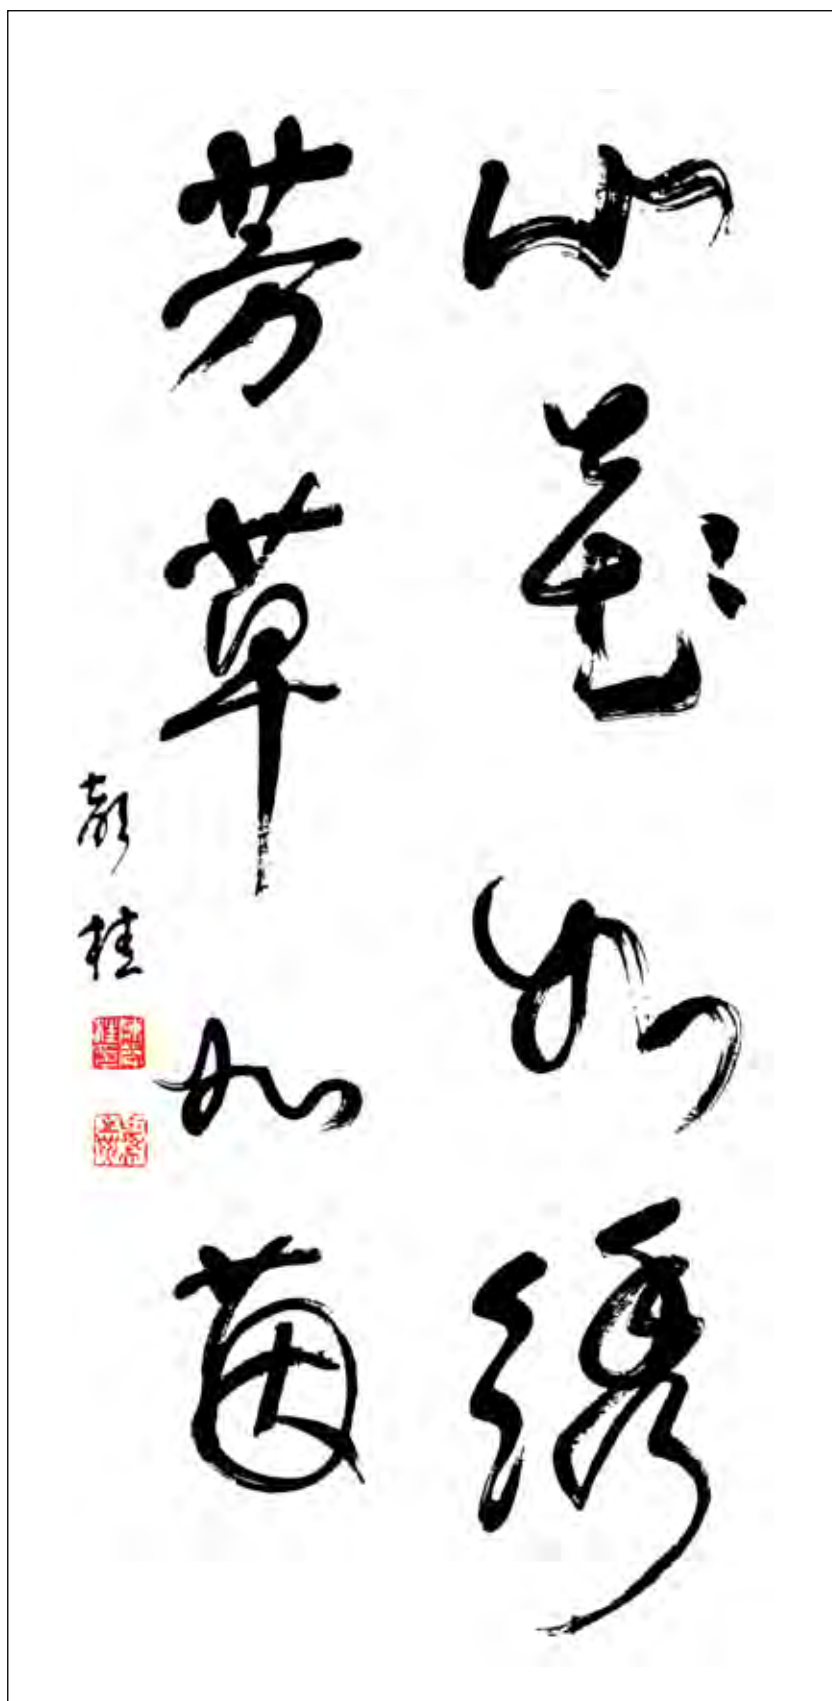 山花如绣
芳草如茵
桂